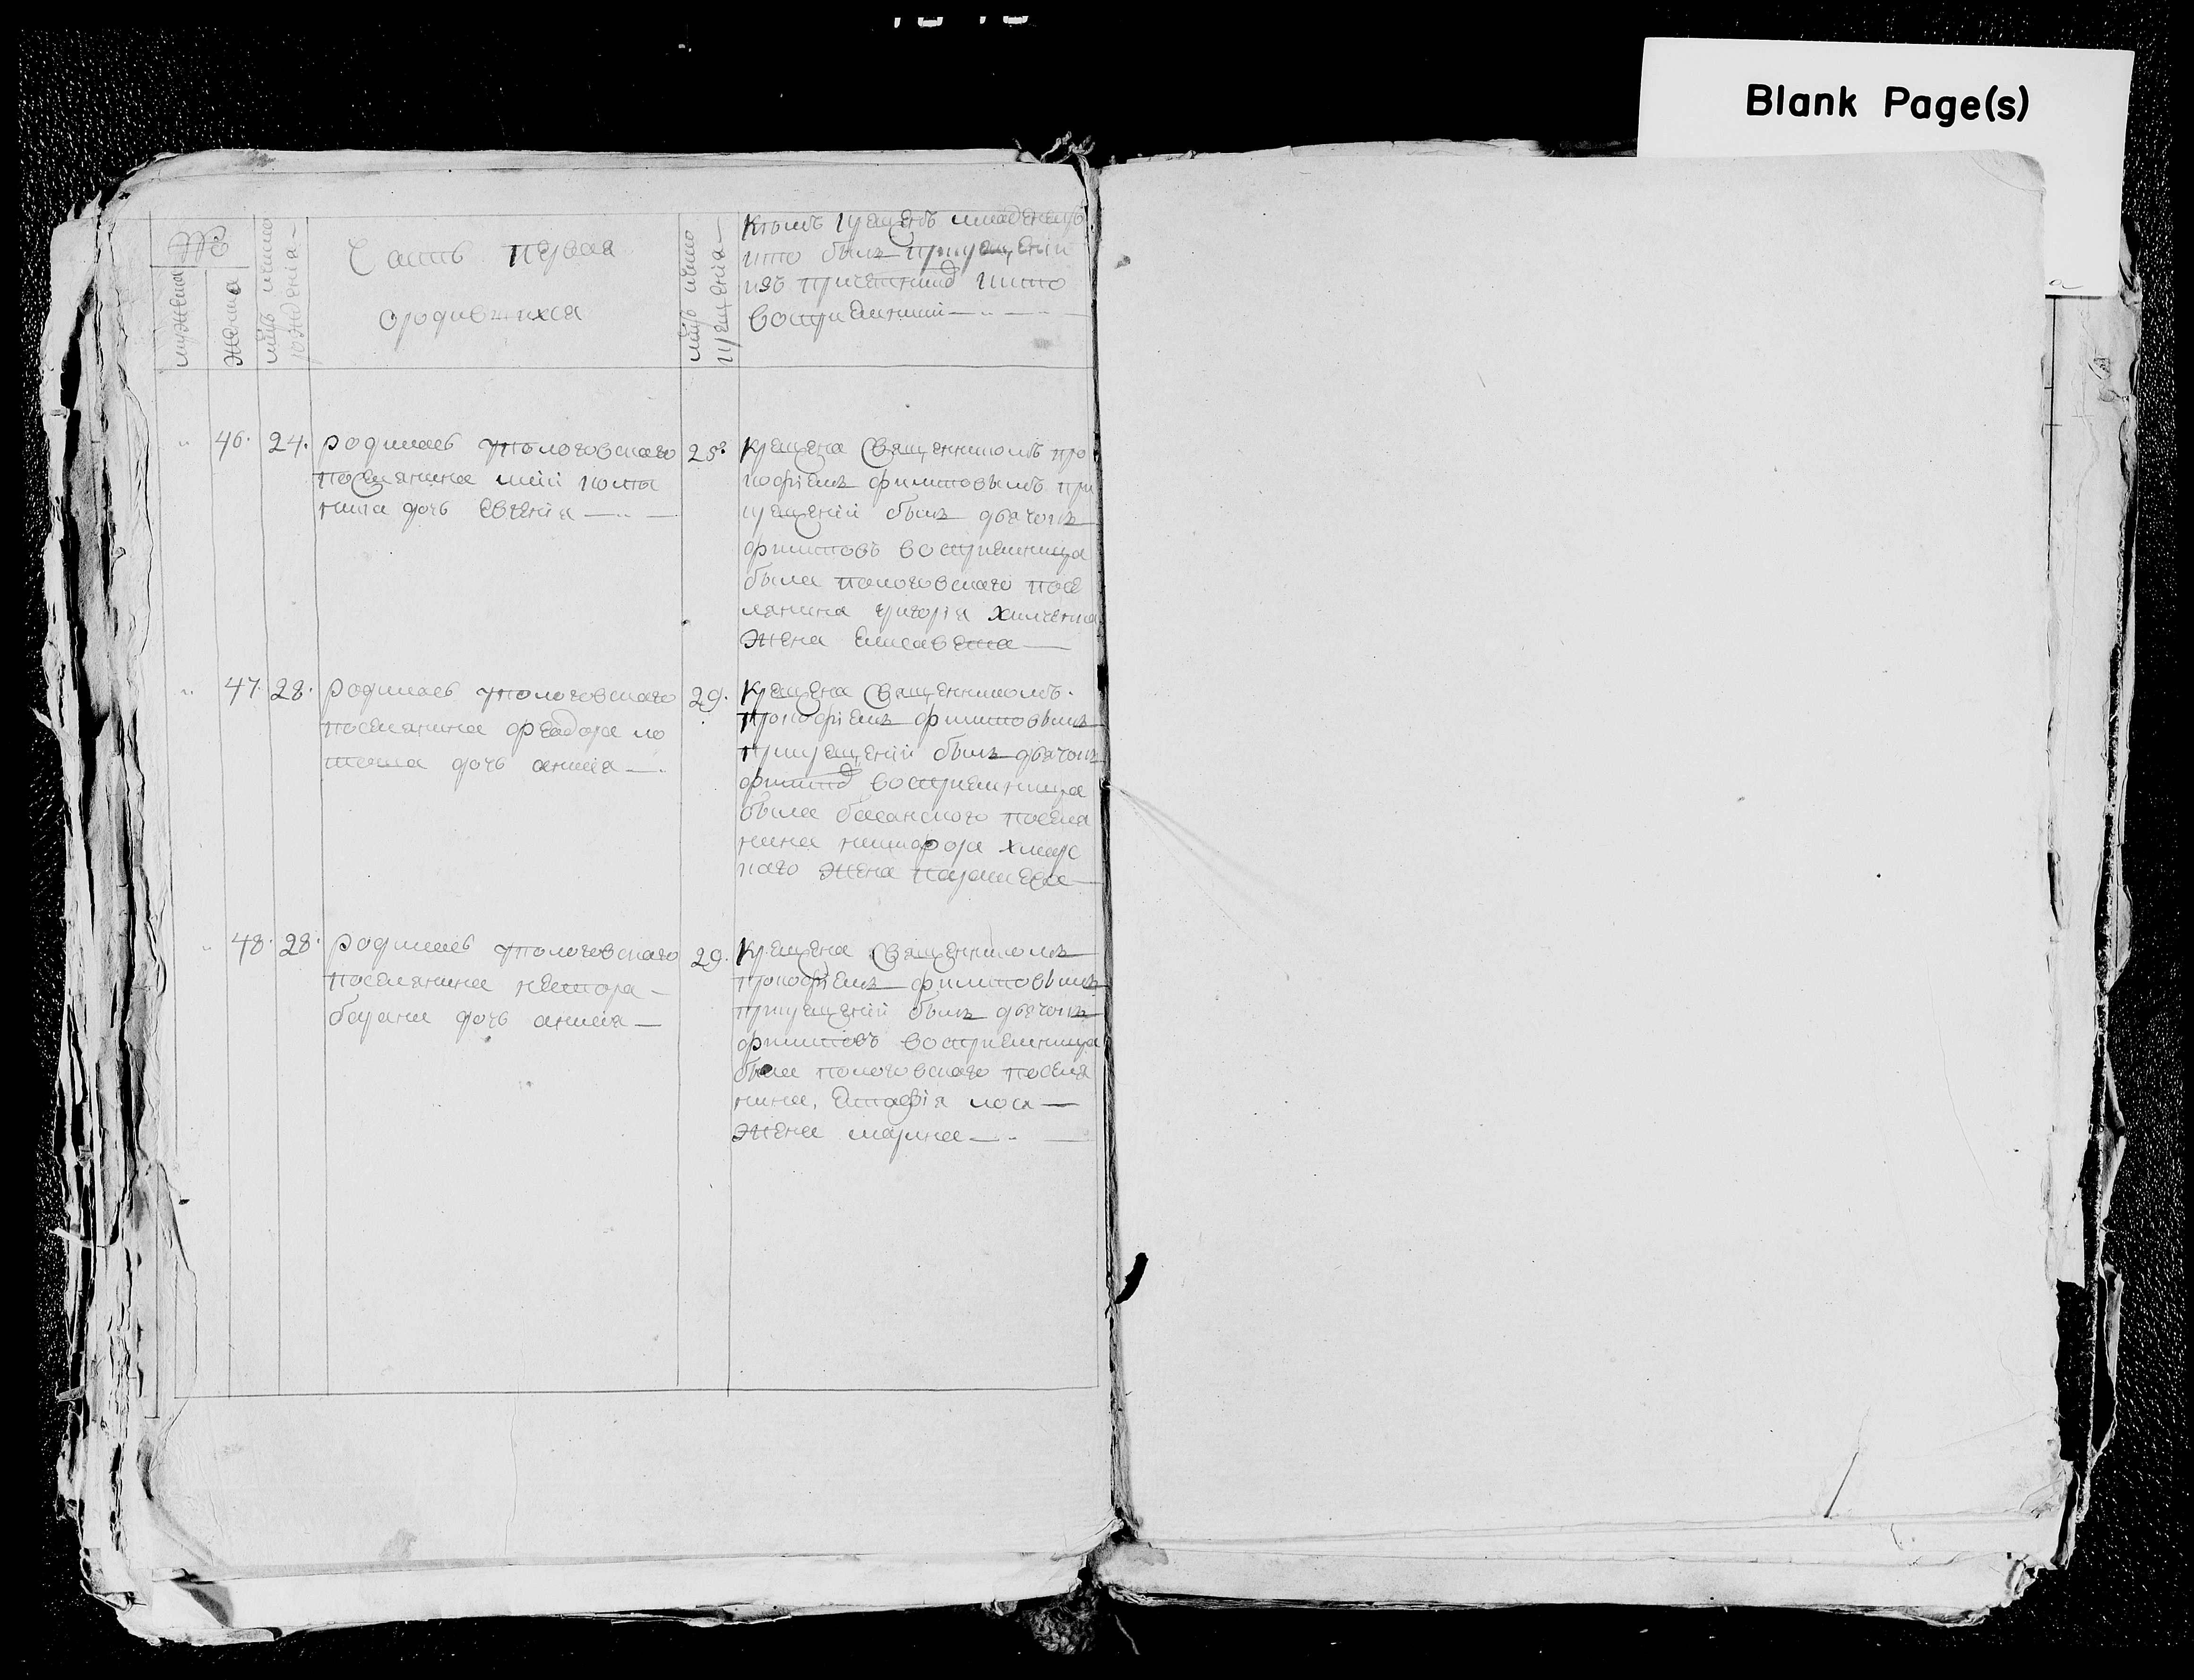 Blank Page(s)
№
мужеска
женска
мц̃ъ и число
рожденія
Часть первая
ородившихся
мц̃ъ и число
крещенія
Кѣмъ крещенъ младенецъ
кто былъ при крещеніи
изъ причетниковъ и кто
воспріемники
46. 24. родилась упологовскаго
поселянина
дочь Евгенія
25. Крещена Священникомъ про
кофіемъ филиповымъ при
крещеніи былъ дьячокъ
филиповъ воспріемница
была пологовскаго посе
лянина григорія Химченка
жена Елисавета
47. 28. родилась упологовскаго
поселянина феодора
дочь анисія
29. Крещена Священникомъ
прокофіемъ филиповымъ
при крещеніи былъ дьячокъ
филиповъ воспріемница
была басанского поселя
нина никифора
жена параскева
48. 28. родилась упологовскаго
поселянина нестора
барана дочь анисія
29. Крещена Священникомъ
прокофіемъ филиповымъ
при крещеніи былъ дьячокъ
филиповъ воспріемница
была пологовскаго поселя
нина, Евстафія лося
жена марина